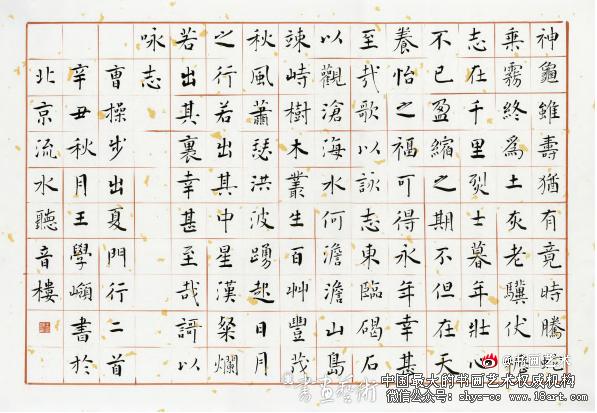 神龜雖壽猶有竟時騰蛇
乘霧終爲土灰老驥伏櫪
志在千里烈士暮年壯心
不已盈縮之期不但在天
養怡之福可得永年幸甚
至哉歌以詠志東臨碣石
以觀滄海水何澹澹山島
竦峙樹木叢生百艸豐茂
秋風蕭瑟洪波踴起日月
之行若出其中星漢粲爛
若出其裏幸甚至哉謌以
咏志
曹操步出夏門行二首
辛丑秋月王學嶺書於
北京流水聽音樓
@书画艺术
書画藝術
中国最大的书画艺术权威机构
微信公众号：shys-cc www.18art.com